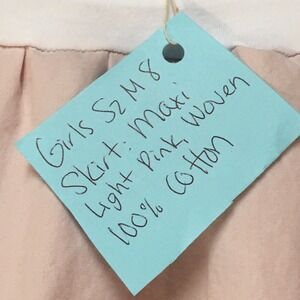 Girls Sz M 8
Skirt: Maxi
Light Pink Woven
100% Cotton